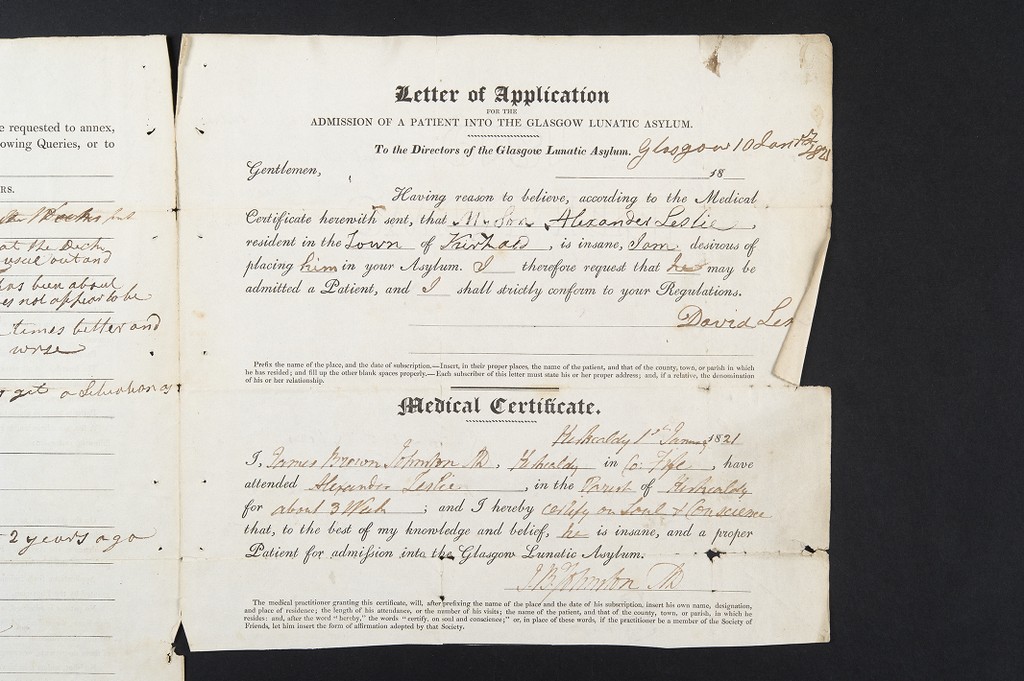 e requested to annex,
owing Queries, or to
RS.
at the Desk
usual out and
has been about
es not appear to be
times better and
worse
get a situation as
2 years ago
Letter of Application
FOR THE
ADMISSION OF A PATIENT INTO THE GLASGOW LUNATIC ASYLUM.
To the Directors of the Glasgow Lunatic Asylum. Glasgow 10 Janry 1821
Gentlemen,
18
Having reason to believe, according to the Medical
Certificate herewith sent, that My Son Alexander Leslie
resident in the Town of , is insane, I am desirous of
placing him in your Asylum. I therefore request that he may be
admitted a Patient, and I shall strictly conform to your Regulations.
David Les
Prefix the name of the place, and the date of subscription.—Insert, in their proper places, the name of the patient, and that of the county, town, or parish in which
he has resided; and fill up the other blank spaces properly.—Each subscriber of this letter must state his or her proper address; and, if a relative, the denomination
of his or her relationship.
Medical Certificate.
Kirkcaldy 1st January 1821
I, James Brown Johnston MD, Kirkcaldy in Co: Fife, have
attended Alexander Leslie, in the Parish of Kirkcaldy
for about 3 Week ; and I hereby certify on Soul & Conscience
that, to the best of my knowledge and belief, he is insane, and a proper
Patient for admission into the Glasgow Lunatic Asylum.
J. B. Johnston MD
The medical practitioner granting this certificate, will, after prefixing the name of the place and the date of his subscription, insert his own name, designation,
and place of residence; the length of his attendance, or the number of his visits; the name of the patient, and that of the county, town, or parish, in which he
resides: and, after the word "hereby," the words "certify, on soul and conscience;" or, in place of these words, if the practitioner be a member of the Society of
Friends, let him insert the form of affirmation adopted by that Society.